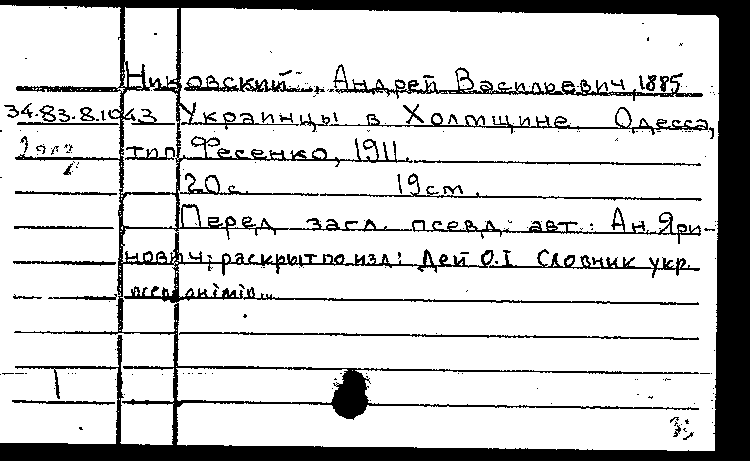 Никовский, Андрей Васильевич, 1885
34.83.8.1043 Украинцы в Холмщине. Одесса,
тип. Фесенко, 1911.
20 с. 19 cm.
Перед загл. псевд. авт.: Ан. Яри-
нович; раскрыт по изд.: Дей О.І Словник укр.
псевдонімів...
1